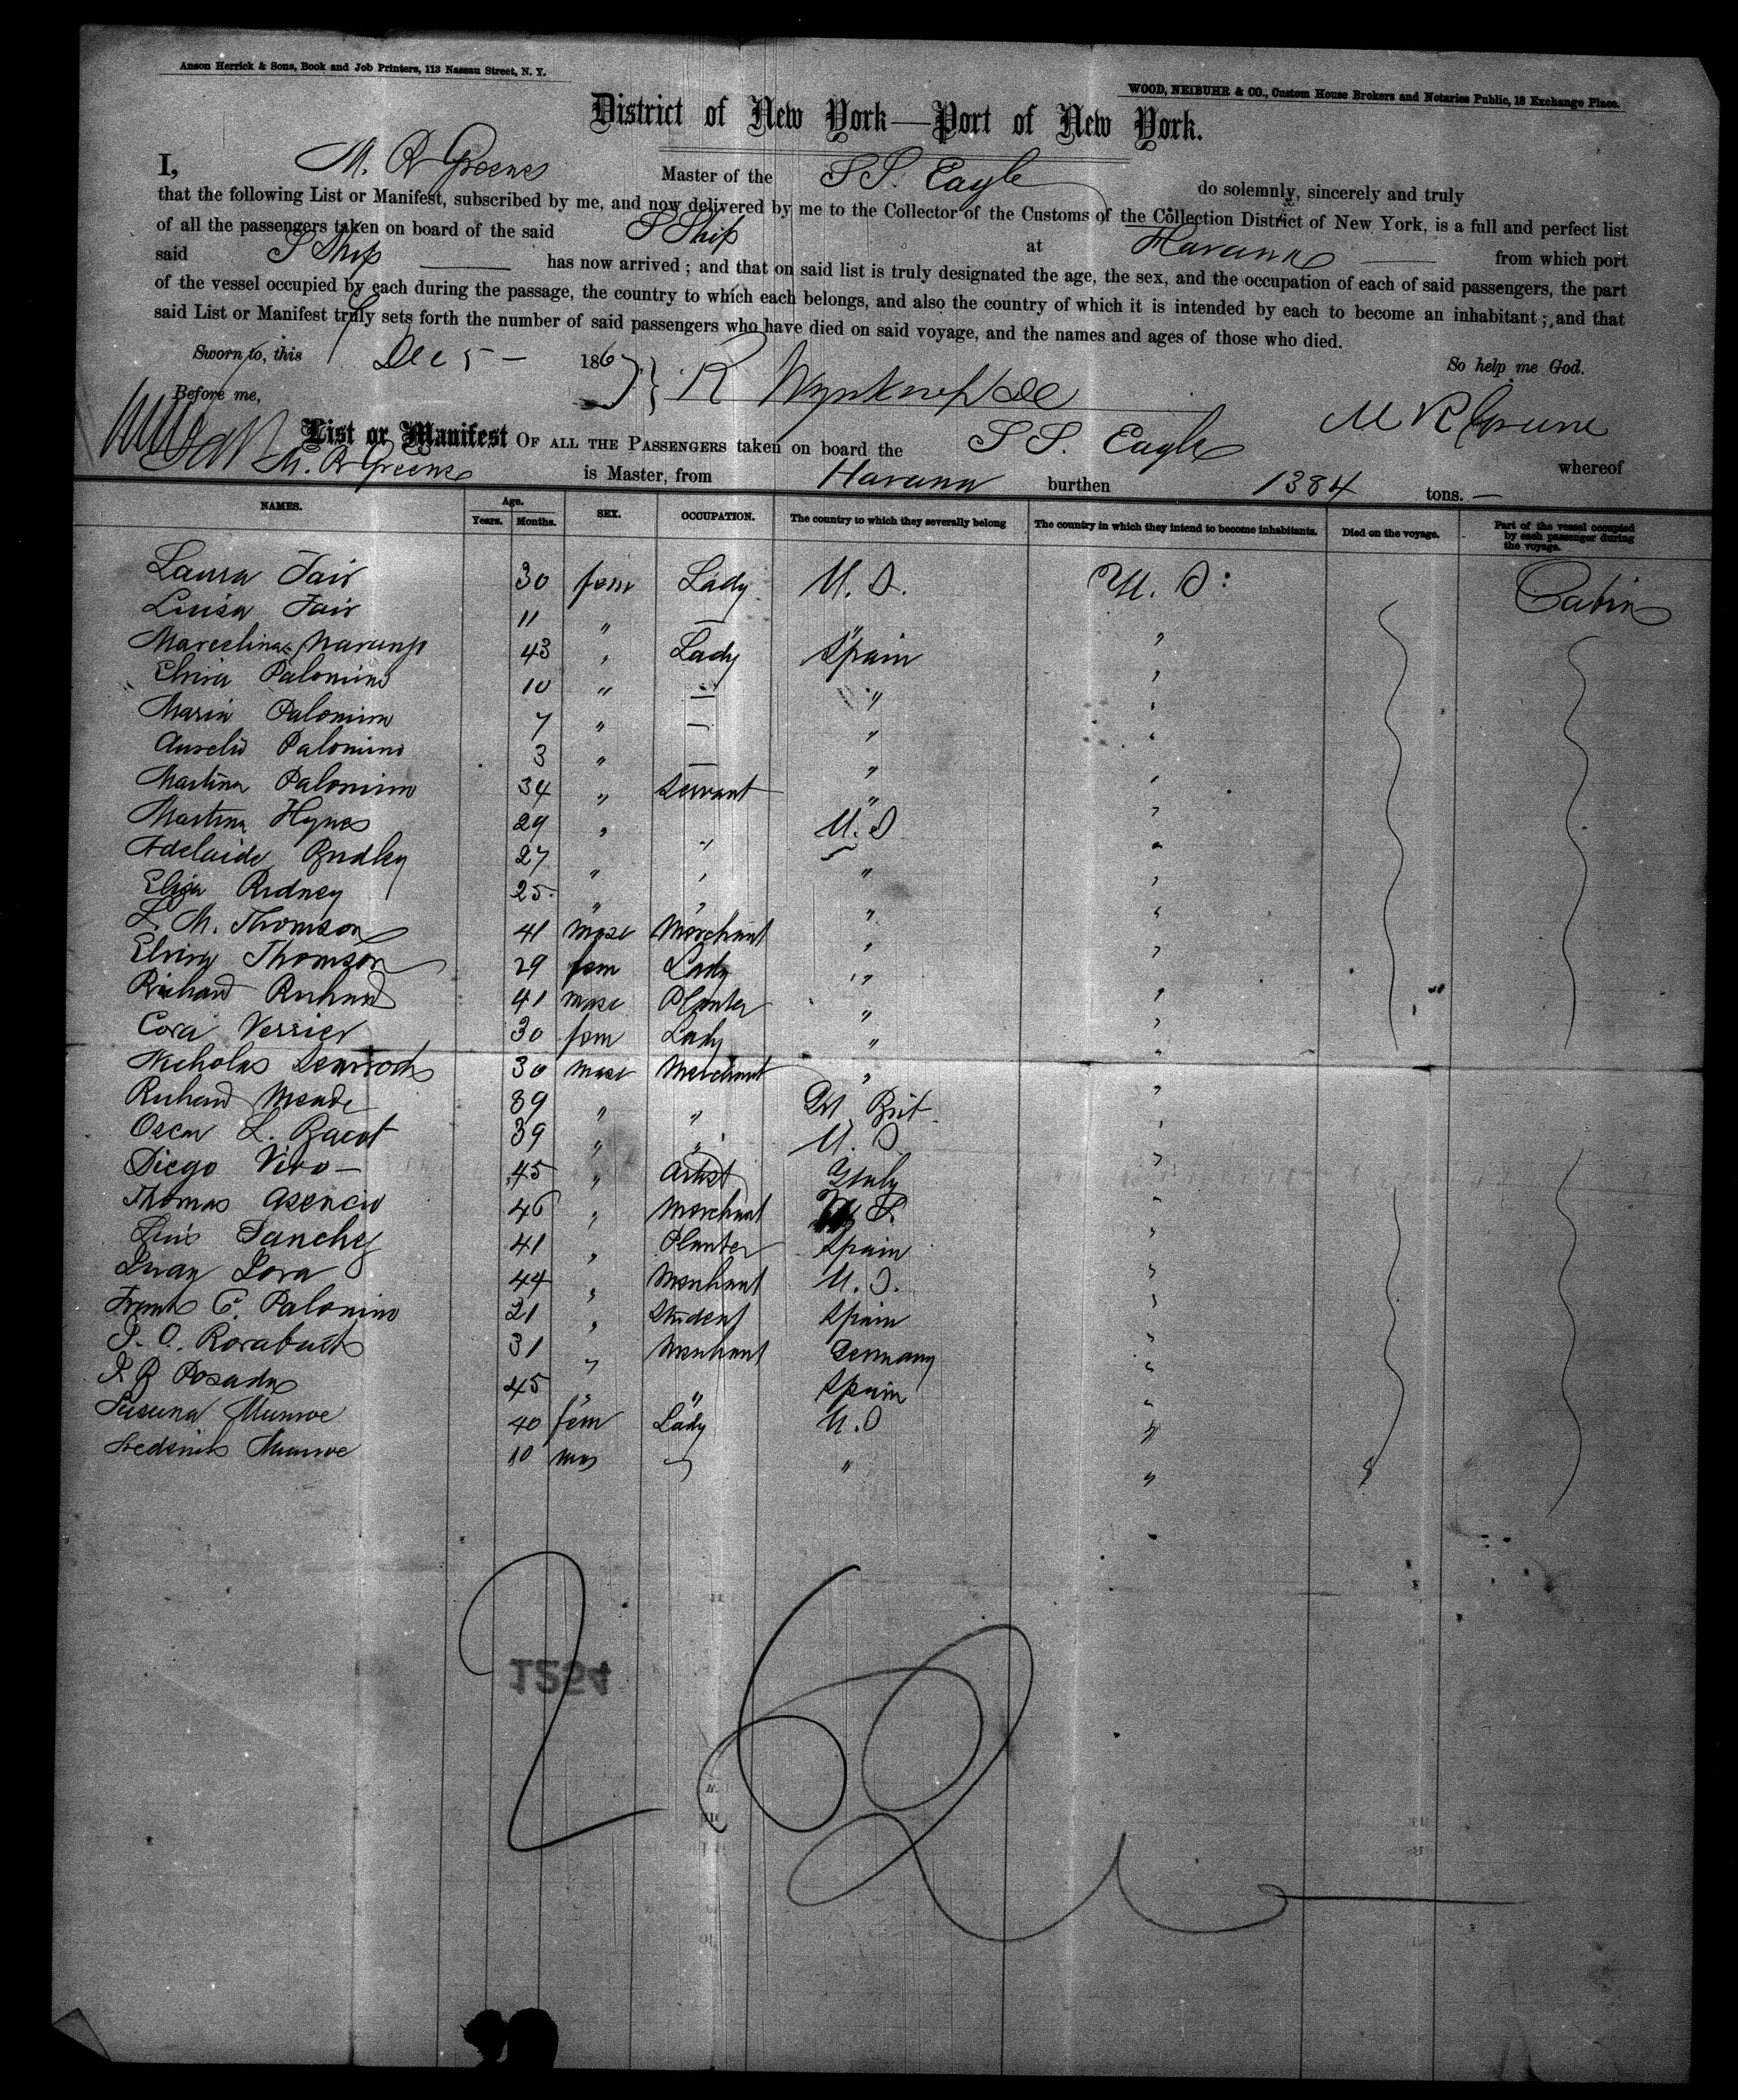 Anson Herrick & Sons, Book and Job Printers, 113 Nassau Street, N. Y.
WOOD, NEIBUHR & CO., Custom House Brokers and Notaries Public, 18 Exchange Place.
District of New York—Port of New York.
I, M. R Greene Master of the S S. Eagle do solemnly, sincerely and truly
that the following List or Manifest, subscribed by me, and now delivered by me to the Collector of the Customs of the Collection District of New York, is a full and perfect list
of all the passengers taken on board of the said S Ship at Havana from which port
said S Ship has now arrived; and that on said list is truly designated the age, the sex, and the occupation of each of said passengers, the part
of the vessel occupied by each during the passage, the country to which each belongs, and also the country of which it is intended by each to become an inhabitant; and that
said List or Manifest truly sets forth the number of said passengers who have died on said voyage, and the names and ages of those who died.
Sworn to, this Dec 5 — 1867 So help me God.
Before me, M R Greene
List or Manifest OF ALL THE PASSENGERS taken on board the S S. Eagle whereof
M. R Greene is Master, from Havana burthen 1384 tons. —
NAMES. Age. Years. Months. SEX. OCCUPATION. The country to which they severally belong The country in which they intend to become inhabitants. Died on the voyage. Part of the vessel occupied by each passenger during the voyage.
Laura Fair 30 fem Lady U. S. U. S: Cabin
Luisa Fair 11 " — " "
Marcelina Naranjo 43 " Lady Spain "
Elvira Palomino 10 " — " "
Maria Palomino 7 " — " "
Aurelio Palomino 3 " — " "
Martina Palomino 34 " Servant " "
Martina Hynes 29 " " U. S "
Adelaide Bradley 27 " " " "
Eliza Ridney 25 " " " "
L. M. Thomson 41 masc Merchant " "
Elvira Thomson 29 fem Lady " "
Richard Richard 41 masc Planter " "
Cora Verrier 30 fem Lady " "
Nicholas 30 masc Merchant " "
Richard Meade 39 " " Gt Brit "
Oscar L. Bacot 39 " " U. S. "
Diego Vivo — 45 " Artist Italy "
Thomas Asencio 46 " Merchant S. "
Luis Sanchez 41 " Planter Spain "
Juan Lora 44 " Merchant U. S. "
Frank C. Palomino 21 " Student Spain "
31 " Merchant Germany "
J B Posada 45 " " Spain "
Susana Munroe 40 fem Lady U. S "
Frederick Munroe 10 mas " "
1584
26